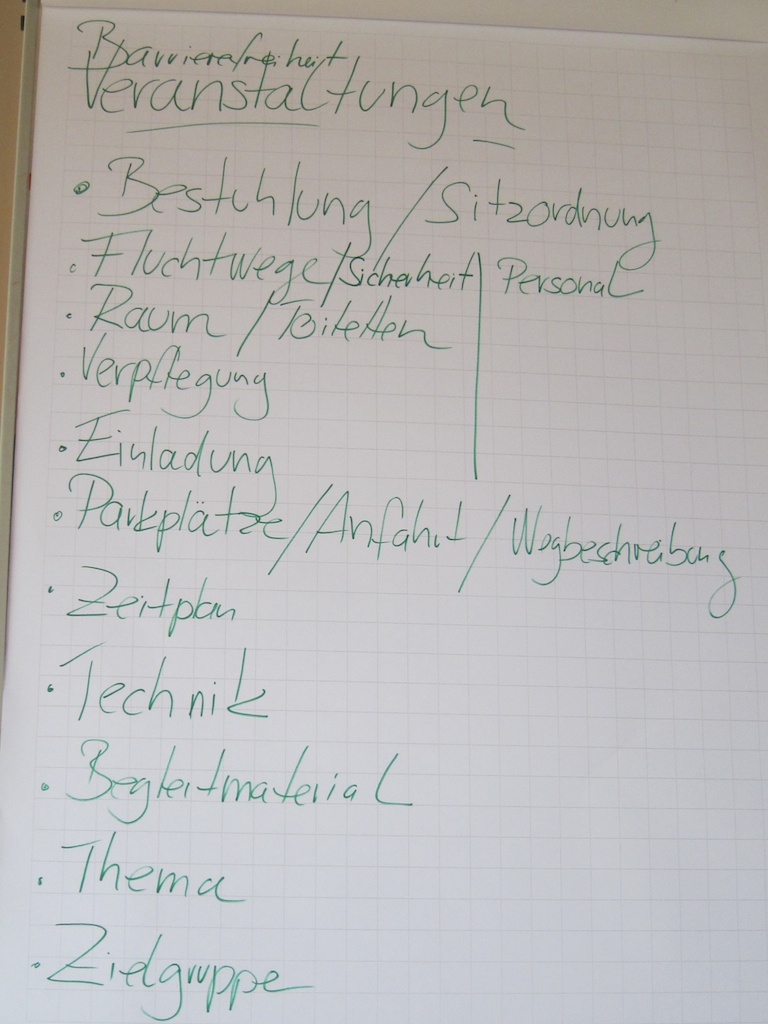 Barrierefreiheit
Veranstaltungen
• Bestuhlung / Sitzordnung
• Fluchtwege / Sicherheit | Personal
• Raum / Toiletten
• Verpflegung
• Einladung
• Parkplätze / Anfahrt / Wegbeschreibung
• Zeitplan
• Technik
• Begleitmaterial
• Thema
• Zielgruppe